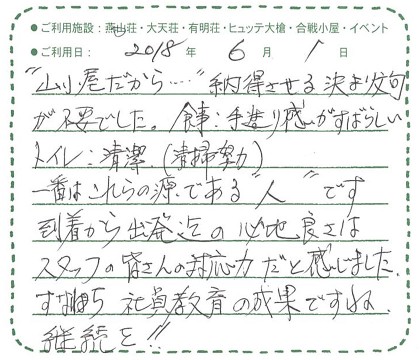 ●ご利用施設：燕山荘・大天荘・有明荘・ヒュッテ大槍・合戦小屋・イベント
●ご利用日： 2018 年 6 月 1 日
"山小屋だから…" 納得させる決まり文句
が不要でした。食事：手造り感がすばらしい
トイレ：清潔。(清掃努力)
一番はこれらの源である "人" です
到着から出発迄の心地良さは
スタッフの皆さんの対応力だと感じました。
すなわち社員教育の成果ですね
継続を!!